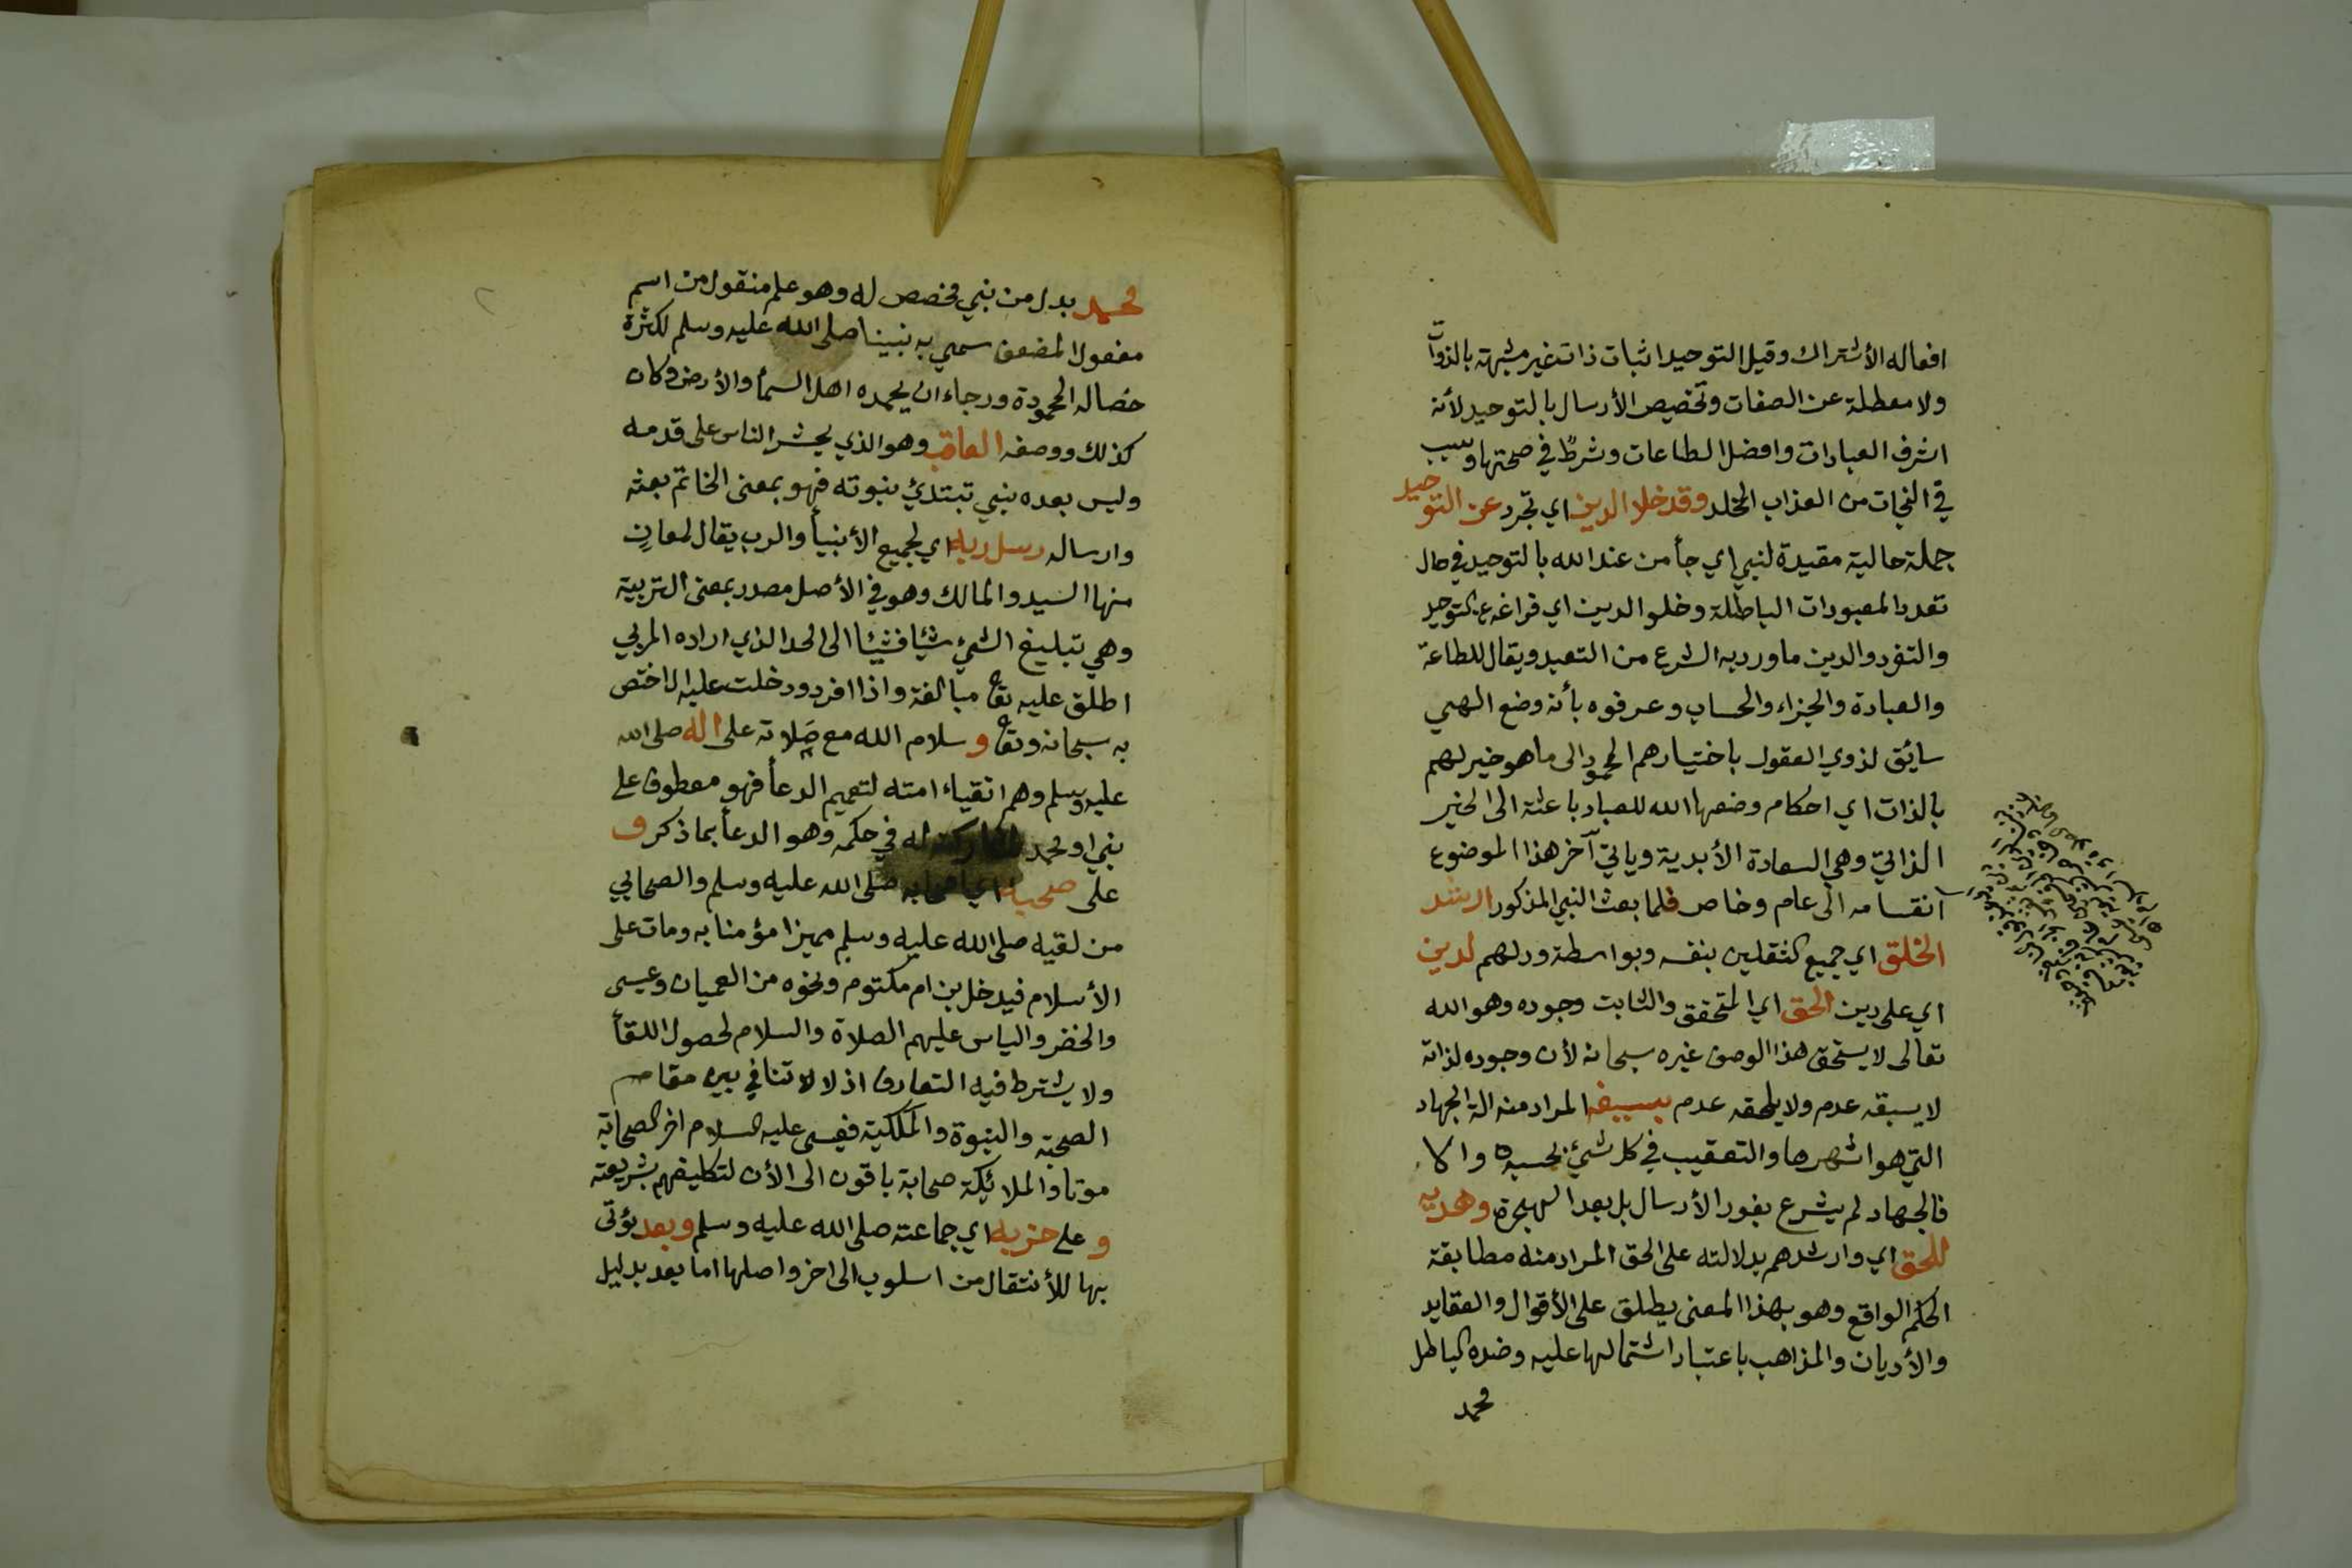 افعاله الأشتراك وقيل التوحيد اثبات ذات غير مشبهة بالذوات
ولا معطلة عن الصفات وتخصيص الأرسال بالتوحيد لأنه
اشرف العبادات وافضل الطاعات وشرط في صحتها وسبب
في النجات من العذاب المخلد وقد خلا الدين اي تجرد عن التوحيد
جملة حالية مقيدة لنبي اي جأ من عند الله بالتوحيد في حال
تعدد المعبودات الباطلة وخلو الدين اي فراغه عن التوحيد
والتفرد والدين ما ورد به الشرع من التعبد ويقال للطاعة
والعبادة والجزاء والحساب وعرفوه بأنه وضع الهي
سائق لذوي العقول باختيارهم المحمود الى ما هو خير لهم
بالذات اي احكام وضعها الله للعباد باعثة الى الخير
الذاتي وهي السعادة الأبدية وياتي آخر هذا الموضوع
انقسامه الى عام وخاص فلما بعث النبي المذكور ارشد
الخلق اي جميع الثقلين بنفسه وبواسطة ودلهم لدين
اي على دين الحق اي المتحقق والثابت وجوده وهو الله
تعالى لا يستحق هذا الوصف غيره سبحانه لأن وجوده لذاته
لا يسبقه عدم ولا يلحقه عدم بسيفه المراد منه الة الجهاد
التي هو اشهرها والتعقيب في كل شيئ بحسبه والا
فالجهاد لم يشرع بفور الأرسال بل بعد الهجرة وهديه
للحق اي وارشدهم بدلالته على الحق المراد منه مطابقة
الحكم الواقع وهو بهذا المعنى يطلق على الأقوال والعقايد
والأديان والمذاهب باعتبار اشتمالها عليه وضده الباطل
محمد
محمد بدل من نبي مخصص له وهو علم منقول من اسم
مفعول المضعف سمي به نبينا صلى الله عليه وسلم لكثرة
خصاله المحمودة ورجاء ان يحمده اهل السمأ والأرض وكان
كذلك ووصفه العاقب وهو الذي يحشر الناس على قدمه
وليس بعده نبي تبتدئ نبوته فهو بمعنى الخاتم بعثه
وارساله رسل ربه اي لجميع الأنبيأ والرب يقال لمعانٍ
منها السيد والمالك وهو في الأصل مصدر بمعنى التربية
وهي تبليغ الشيئ شيئا فشيئا الى الحد الذي اراده المربي
اطلق عليه تعا مبالغة واذا افرد ودخلت عليه ال اختص
به سبحانه وتعا و سلام الله مع صلاته على اله صلى الله
عليه وسلم وهم اتقياء امته لتعميم الدعأ فهو معطوف على
نبي او محمد لمشاركته له في حكمه وهو الدعأ بما ذكر و
على صحبه اي اصحابه صلى الله عليه وسلم والصحابي
من لقيه صلى الله عليه وسلم مميزا مؤمنا به ومات على
الأسلام فيدخل بن ام مكتوم ونحوه من العميان وعيسى
والخضر والياس عليهم الصلاة والسلام لحصول اللقأ
ولا يشترط فيه التعارف اذ لا تنافي بين مقام
الصحبة والنبوة والملكية فعيسى عليه السلام اخر الصحابة
موتا والملائكة صحابة باقون الى الأن لتكليفهم بشريعته
و على حزبه اي جماعته صلى الله عليه وسلم وبعد يؤتى
بها للأنتقال من اسلوب الى اخر واصلها اما بعد بدليل